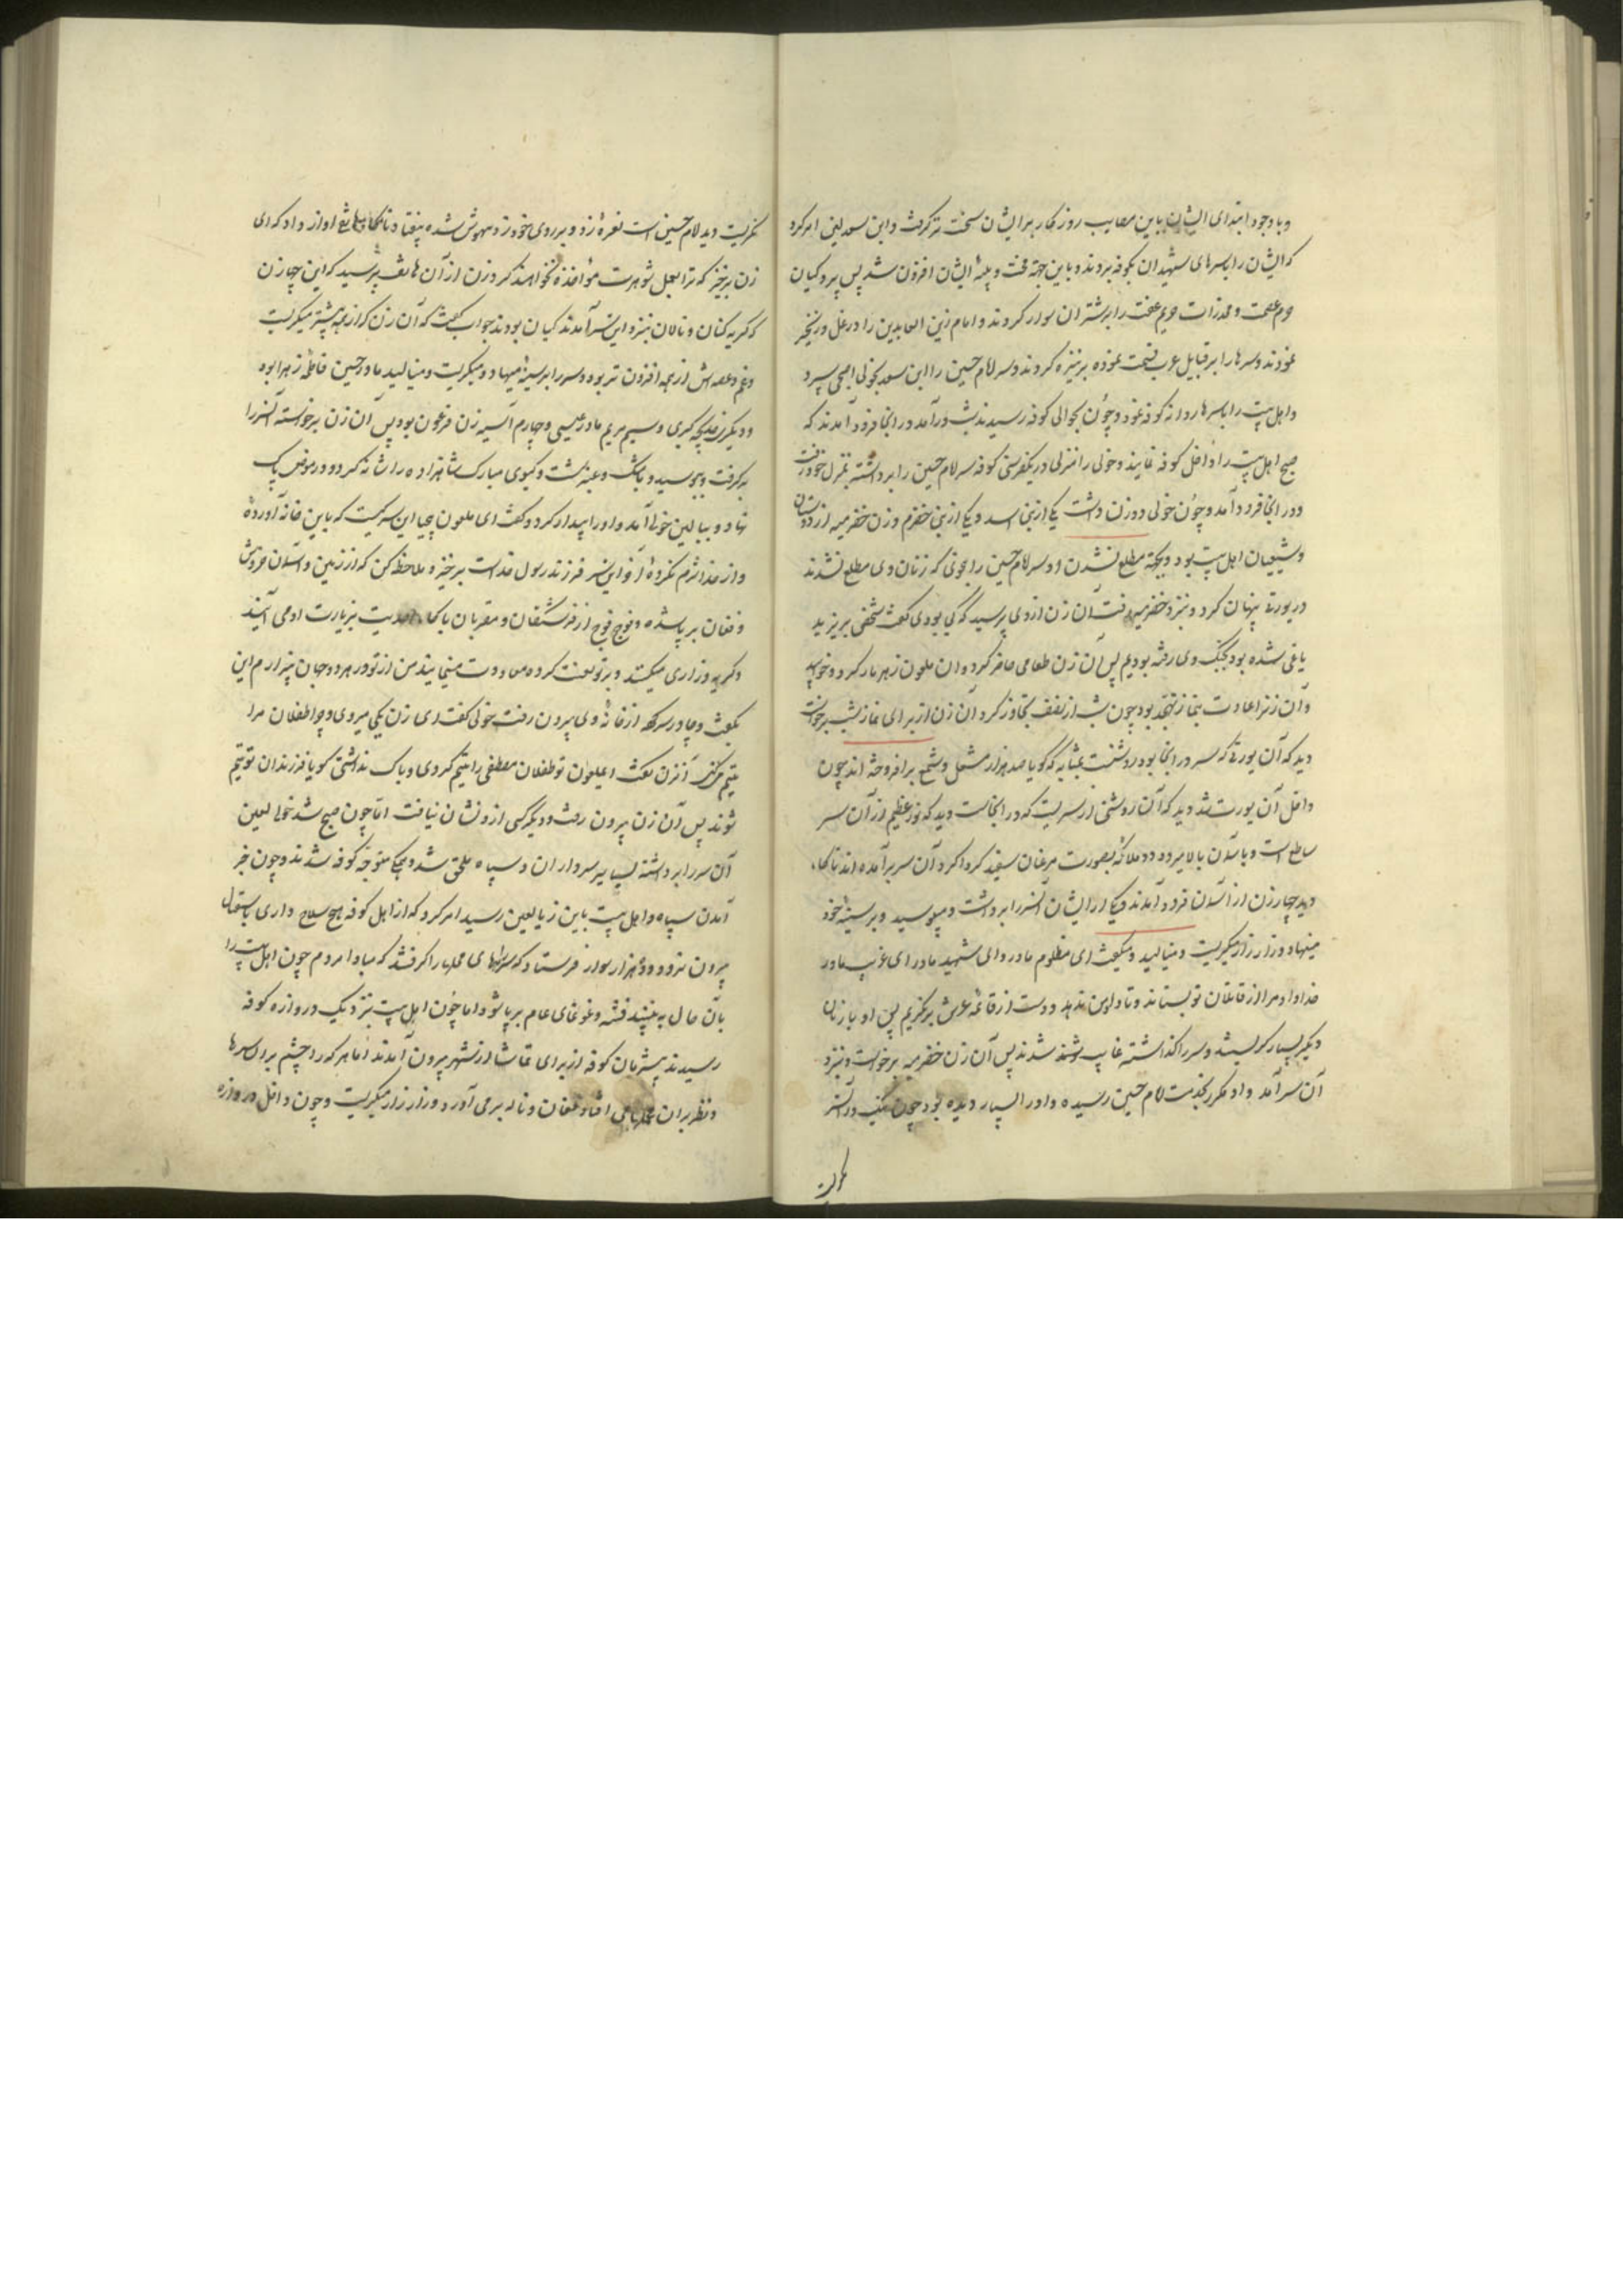 وباوجود ابتدای ایشان باین مصایب روزگار بر ایشان سخت تر گرفت و ابن سعد لعین امر کرد
که ایشان را باسرهای شهیدان بکوفه بردند و باین جهة محنت و بلیهٔ ایشان افزون شد پس پردکیان
حرم عصمت و مخدرات حریم عفت را بر شتران سوار کردند و امام زین العابدین را در غل و زنجیر
نمودند و سرها را بر قبایل عرب قسمت نموده بر نیزه کردند و سر امام حسین را ابن سعد بخولی اصبحی سپرد
و اهل بیت را باسرها روانه کوفه نمود و چون بحوالی کوفه رسیدند شب درآمد در انجا فرود آمدند که
صبح اهل بیت را داخل کوفه نمایند و خولی را منزلی در یکفرسخی کوفه سر امام حسین را برداشته بمنزل خود رفت
و در انجا فرود آمد و چون خولی دو زن داشت یکی از بنی اسد و یکی از بنی خضرم و زن خضرمیه از دوستان
و شیعیان اهل بیت بود و بجهة مطلع نشدن او سر امام حسین را بخوی که زنان وی مطلع نشدند
در یورتی پنهان کرد و بنزد خضرمیه رفت آن زن از وی پرسید که کی بودی گفت شخصی بر یزید
یاغی شده بود بجنگ وی رفته بودیم پس آن زن طعامی حاضر کرد و ان ملعون زهرمار کرد و خوابید
و آن زنرا عادت بنماز تهجد بود چون شب از نصف تجاوز کرد آن زن از برای نماز شب برخواست
دید که آن یورتی که سر در انجا بود روشنست بمثابه که گویا صد هزار مشعل و شمع برافروخته اند چون
داخل آن یورت شد دید که آن روشنی از سریست که در انجاست دید که نور عظیم از آن سر
ساطع است و باسمان بالا میرود و ملائکه بصورت مرغان سفید گرداگرد آن سر برآمده اند ناگاه
دید چهار زن از آسمان فرود آمدند و یکی از ایشان آنسر را برداشت و میبوسید و بر سینه خود
مینهاد و زار زار میگریست و مینالید و میگفت ای مظلوم مادر و ای شهید مادر ای غریب مادر
خدا داد مرا از قاتلان تو بستاند و تا داد من ندهد دست از قائمه عرش برنگیریم پس او با زنان
دیگر بسیار گریستند و سر را گذاشته غایب شدند پس آن زن خضرمیه برخواست و بنزد
آن سر آمد و او مکرر بخدمت امام حسین رسیده و او را بسیار دیده بود چون نیک در آنسر
نگریست
نگریست دید امام حسین است نعرهٔ زد و بر روی خود زد و بیهوش شده بیفتاد و ناگاه هاتفی اواز داد که ای
زن برخیز که ترا بعمل شوهرت مواخذه نخواهند کرد زن از آن هاتف پرسید که این چهار زن
که گریه کنان و نالان بنزد این سر آمدند کیان بودند جواب گفت که آن زن که از همه بیشتر میگریست
و غم و غصه اش از همه افزون تر بود و سر را بر سینه مینهاد و میگریست و مینالید مادر حسین فاطمه زهرا بود
و دیگری خدیجه کبری و سیم مریم مادر عیسی و چهارم آسیه زن فرعون بود پس آن زن برخواسته آنسر را
برگرفت و ببوسید و بمشک و عنبر شست و گیسوی مبارک شاهزاده را شانه کرد و در موضع پاک
نهاد و ببالین خولی آمد و او را بیدار کرد و گفت ای ملعون بیحیا این سر کیست که باین خانه آوردهٔ
و از خدا شرم نکردهٔ آخر این سر فرزند رسول خداست برخیز و ملاحظه کن که از زمین و آسمان خروش
و فغان بر پا شده و فوج فوج از فرشتگان و مقربان بارگاه احدیت بزیارت او می آیند
و گریه و زاری میکنند و بر تو لعنت کرده معاودت مینمایند من از تو در هر دو جهان بیزارم این
بگفت و چادر سر کرده از خانهٔ وی بیرون رفت خولی گفت ای زن بکی میروی و چرا طفلان مرا
یتیم میکنی آنزن گفت ایملعون تو طفلان مصطفی را یتیم کردی و باک نداشتی گو یا فرزندان تو یتیم
شوند پس آن زن بیرون رفت و دیگر کسی از و نشان نیافت اما چون صبح شد خولی لعین
آن سر را برداشته بسایر سرداران و سپاه ملحق شد و همگی متوجه کوفه شدند و چون خبر
آمدن سپاه و اهل بیت باین زیاد لعین رسید امر کرد که از اهل کوفه هیچ سلاح داری باستقبال
بیرون نرود و ده هزار سوار فرستاد که سر راههای محلها را گرفتند که مبادا مردم چون اهل بیت را
بآن حال به بینند فتنه و غوغای عام برپا شود اما چون اهل بیت بنزدیک دروازه کوفه
رسیدند بیشرمان کوفه از برای تماشا از شهر بیرون آمدند اما هر که را چشم بر آن سرها
و نظر بر ان محملها می افتاد فغان و ناله برمی آورد و زار زار میگریست و چون داخل دروازه